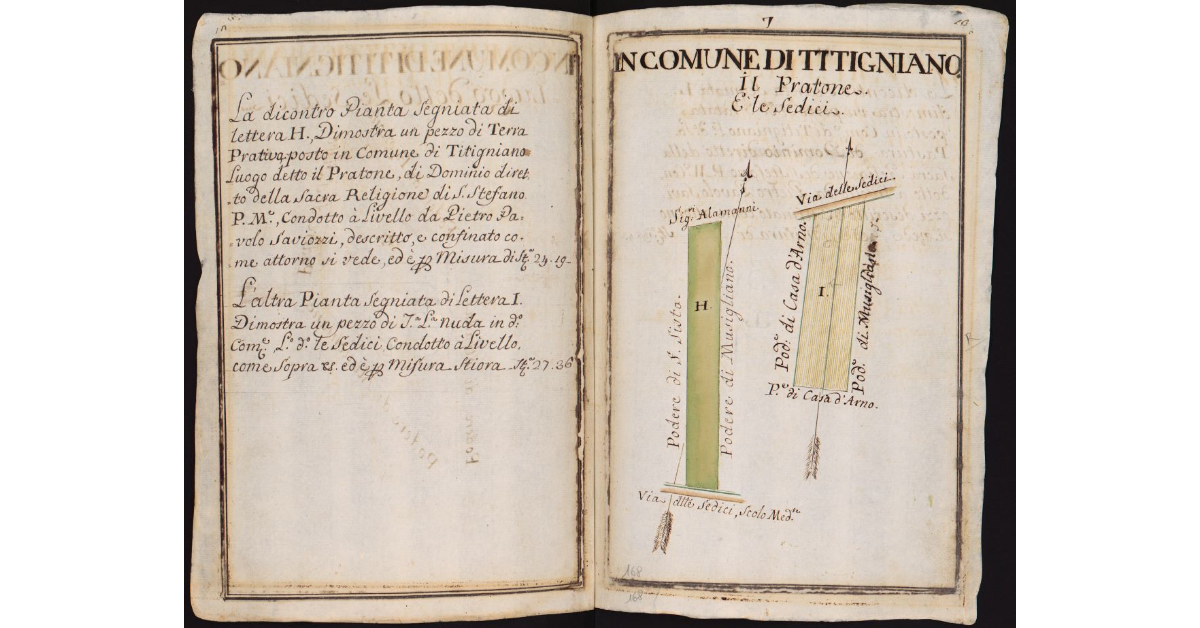 La dicontro Pianta Segniata di
lettera H., Dimostra un pezzo di Terra
Prativa posto in Comune di Titigniano
Luogo detto il Pratone, di Dominio diret,
,to della Sacra Religione di S. Stefano
P. Mᵉ, Condotto à Livello da Pietro Pa,
,volo Saviozzi, descritto, e confinato co,
me attorno si vede, ed è Misura di 24.19
L'altra Pianta Segniata di Lettera I.
Dimostra un pezzo di Tᵃ Lᵃ nuda in dº
Comᵉ, Lº dº le Sedici Condotto à Livello,
come sopra ed è Misura Stiora 27.36
7
10
IN COMUNE DI TITIGNIANO
il Pratone.
E le Sedici.
Via delle Sedici.
Sigʳⁱ Alamanni.
H.
Podere di S. Sisto.
Podere di Musigliano.
Via delle Sedici, Scolo Medⁿ
I.
Podᵉ di Casa d'Arno.
Podᵉ di Musigliano
P.ᵉ di Casa d'Arno.
168
168